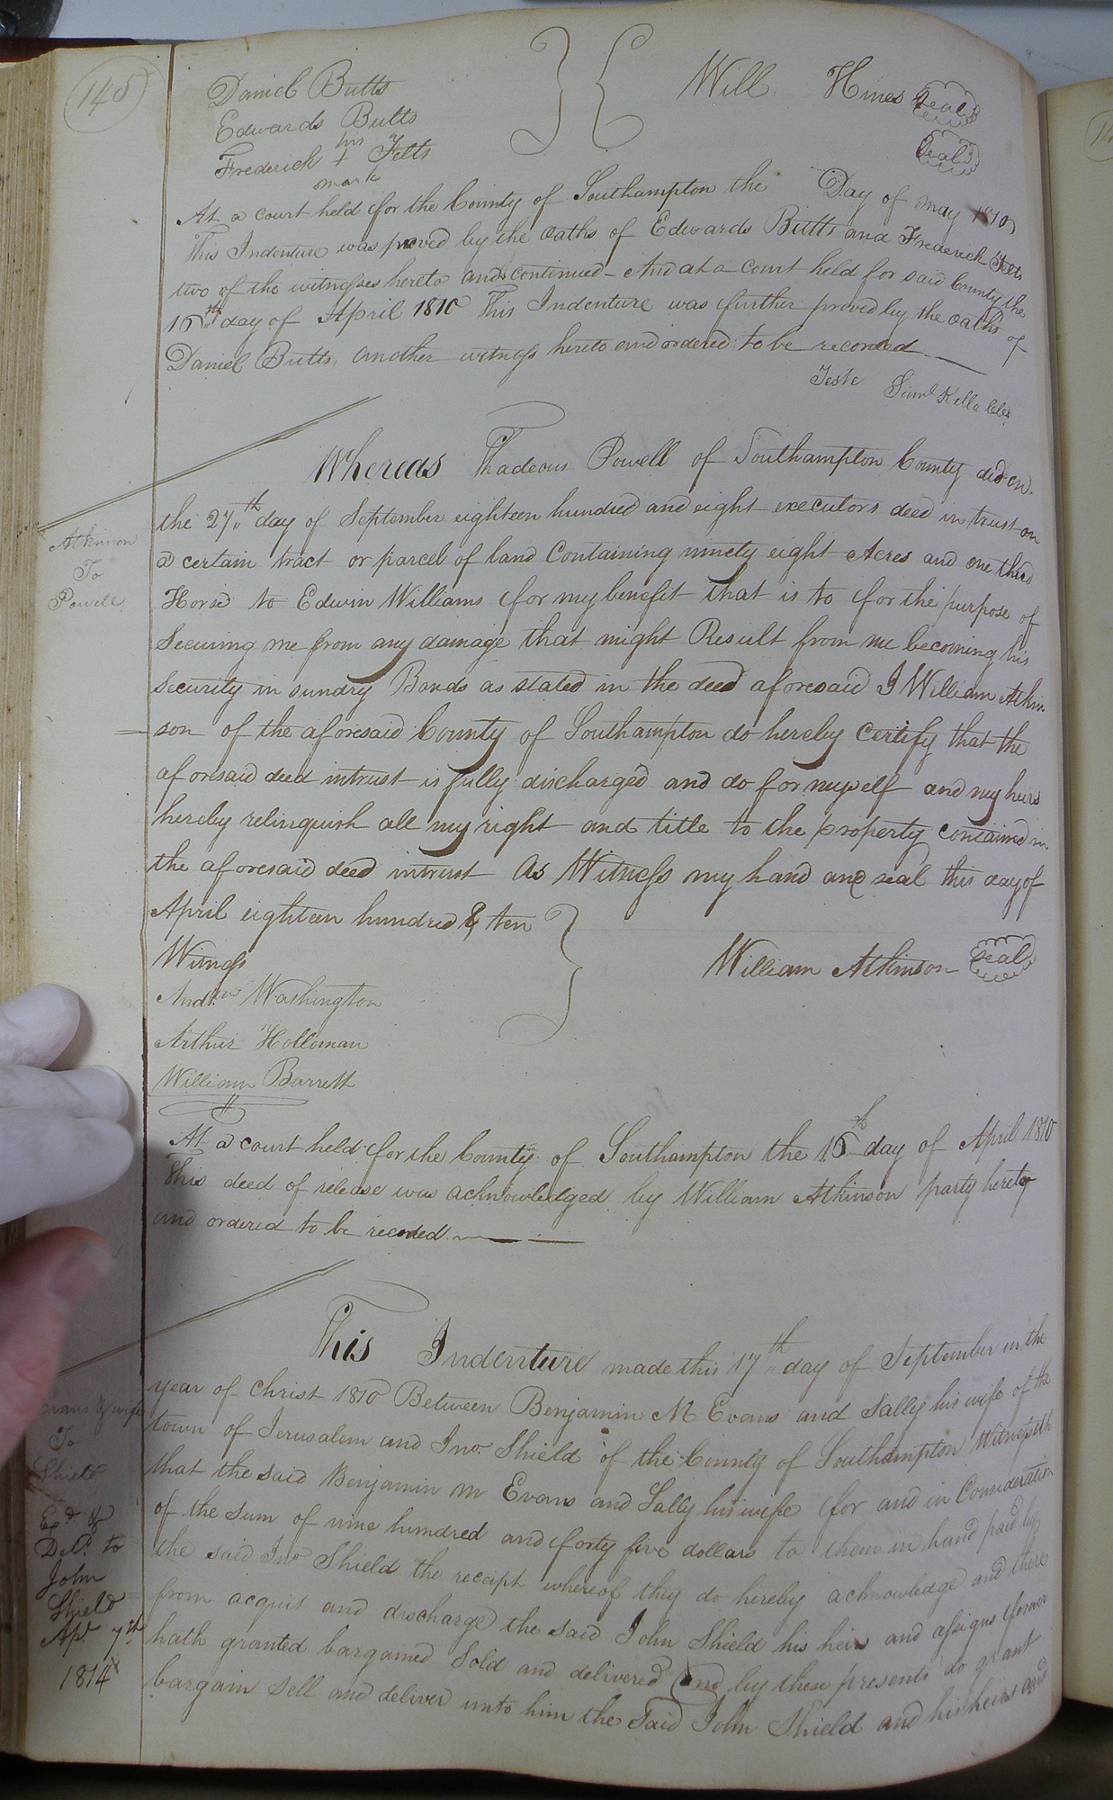 148
Daniel Butts
Edwards Butts
his
Frederick + Felts
mark
Will Hines Seal
Seal
At a court held for the County of Southampton the Day of may 1810
This Indenture was proved by the oaths of Edwards Butts and Frederick Felts
two of the witnesses hereto and continued - And at a court held for said County the
16th day of April 1810 This Indenture was further proved by the oaths of
Daniel Butts, another witness hereto and ordered to be recorded
Teste Saml Kello Clk
Atkinson
To
Powell
Whereas Thadeous Powell of Southampton County did on
the 27th day of September eighteen hundred and eight executors deed in trust on
a certain tract or parcel of land Containing ninety eight Acres and one third
Horse to Edwin Williams for my benefit that is to for the purpose of
Securing me from any damage that might Result from me becoming his
Security in sundry Bonds as stated in the deed aforesaid I William Atkin
son of the aforesaid County of Southampton do hereby Certify that the
aforesaid deed intrust is fully discharged and do for myself and my heirs
hereby relinquish all my right and title to the property contained in
the aforesaid deed intrust As Witness my hand and seal this day of
April eighteen hundred & ten
Witness
Andrew Washington
Arthur Holloman
William Barrett
William Atkinson seal
At a court held for the County of Southampton the 16th day of April 1810
This deed of release was acknowledged by William Atkinson party hereto
and ordered to be recorded.
Evans & wife
To
Shield
Exd &
Deld. to
John
Shield
Apl 7th
1814
This Indenture made this 17th day of September in the
year of Christ 1810 Between Benjamin M Evans and Sally his wife of the
town of Jerusalem and Jno. Shield of the County of Southampton Witnesseth
that the said Benjamin M Evans and Sally his wife for and in Consideration
of the Sum of nine hundred and forty five dollars to them in hand paid by
the said Jno Shield the receipt whereof they do hereby acknowledge and there
from acquit and discharge the said John Shield his heirs and assigns forever
hath granted bargained Sold and delivered and by these presents do grant
bargain Sell and deliver unto him the Said John Shield and his heirs and